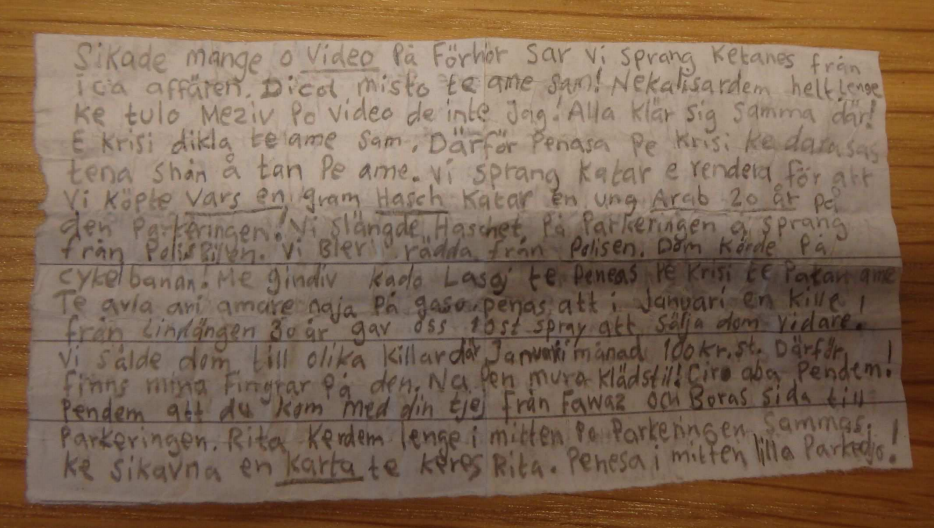 Sikade mange o Video På Förhör Sar vi Sprang Ketanes från
ica affären. Dicol misto te ame sam! Nekalisardem helt lenge
Ke tulo Meziv Po Video de inte Jag! Alla klär sig Samma där!
E krisi dikla te ame Sam. Därför Penasa Pe Krisi ke dasasas
tena Shan å tan Pe ame. Vi Sprang Katar e rendela för att
Vi Köpte Vars en gram Hasch Katar en ung Arab 20 år på
den Parkeringen! Vi Slängde Haschet På Parkeringen å Sprang
från PolisBilen. Vi Blev rädda från Polisen. Dom Körde På
Cykelbanan! Me gindiv kado Lasoj te Peneas Pe Krisi te Patan ame
Te avla ari amare naja På gaso penas att i Januari en kille
från Lindängen 30 år gav oss 10st spray att Sälja dom vidare.
Vi Sålde dom till olika killar där Januari månad 100 kr. st. Därför
finns mina Fingrar På den. Na Pen mura klädstil! Ciro aba Pendem!
Pendem att du kom med din tjej från Fawaz och Boras Sida till
Parkeringen. Rita Kerdem lenge i mitten Po Parkeringen Sammas.
Ke Sikavna en Karta te keres Rita. Penesa i mitten lilla Parkedjo!